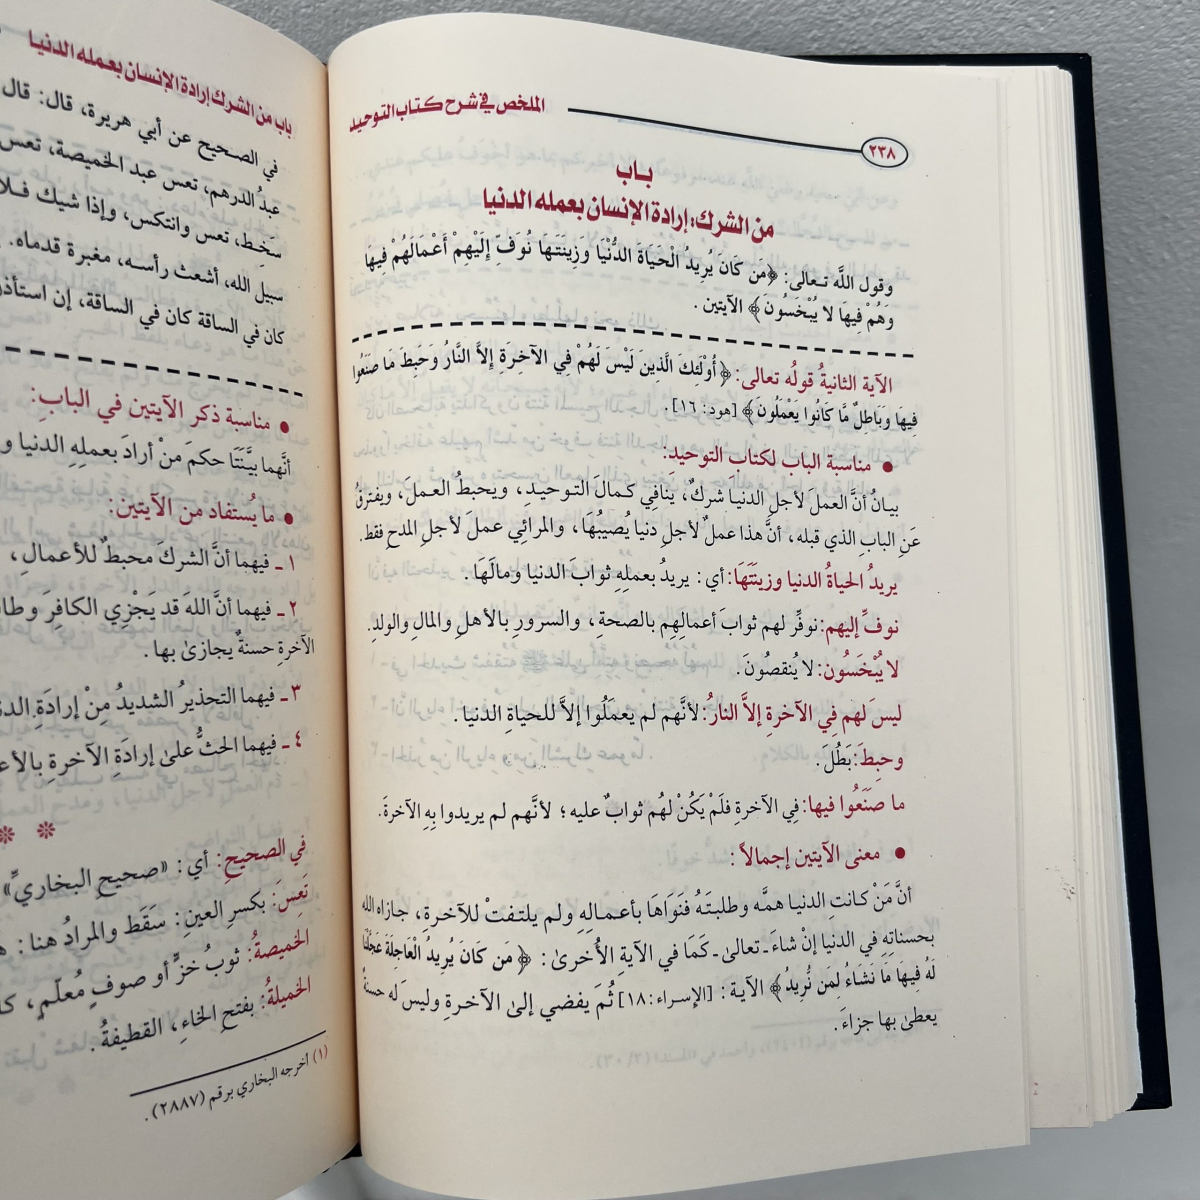 الملخص في شرح كتاب التوحيد
٢٣٨
بـاب
من الشرك: إرادة الإنسان بعمله الدنيا
وقول اللَّه تـعالى: ﴿مَن كَانَ يُرِيدُ الْحَيَاةَ الدُّنْيَا وَزِينَتَهَا نُوَفِّ إِلَيْهِمْ أَعْمَالَهُمْ فِيهَا
وَهُمْ فِيهَا لا يُبْخَسُونَ﴾ الآيتين .
الآية الثانيةُ قولُه تعالى: ﴿أُوْلَئِكَ الَّذِينَ لَيْسَ لَهُمْ فِي الآخِرَةِ إِلاَّ النَّارُ وَحَبِطَ مَا صَنَعُوا
فِيهَا وَبَاطِلٌ مَّا كَانُوا يَعْمَلُونَ﴾ [هود: ١٦].
● مناسبة الباب لكتاب التوحيد:
بيـانُ أنَّ العملَ لأجلِ الدنيـا شركٌ، ينَافِي كـمالَ التـوحيـدِ، ويحبطُ العمـلَ، ويفترقُ
عَنِ البابِ الذي قبله، أنَّ هذا عملٌ لأجلِ دنيا يُصيبُهَا، والمرائِي عملَ لأجلِ المدحِ فقط.
يريدُ الحياةُ الدنيا وزينَتَهَا: أي: يريدُ بعملِهِ ثوابَ الدنيا ومالَهَا .
نوفِّ إليهم: نوفِّر لهم ثوابَ أعمالِهِم بالصحةِ، والسرورِ بالأهلِ والمالِ والولدِ.
لا يُبْخَسُون: لا يُنقصُونَ .
ليسَ لهم فِي الآخرةِ إلاَّ النارُ: لأنَّهم لم يعمَلُوا إلاَّ للحياةِ الدنيا .
وحبِطَ: بَطُلَ .
ما صَنَعُوا فيها: فِي الآخرةِ فلَمْ يَكُنْ لهُم ثوابٌ عليه؛ لأنَّهم لم يريدوا بِهِ الآخرةَ.
● معنى الآيتين إجمالاً :
أنَّ مَنْ كانتِ الدنيا همَّه وطلبتَـهُ فَنَوَاهَا بأعمـالِهِ ولم يلتـفتْ للآخرةِ، جازاه الله
بحسناتِهِ في الدنيا إنْ شاءَ ـ تعالىٰ ـ كَمَا في الآيةِ الأُخرىٰ : ﴿مَن كَانَ يُرِيدُ الْعَاجِلَةَ عَجَّلْنَا
لَهُ فِيهَا مَا نَشَاءُ لِمَن نُّرِيدُ﴾ الآية : [الإسراء: ١٨] ثُمَ يفضي إلىٰ الآخرةِ وليسَ له حسنةٌ
يعطىٰ بها جزاءً .
باب من الشرك إرادة الإنسان بعمله الدنيا
في الصـحيح عن أبي هريرة، قال: قال
عبدُ الدرهم، تعس عبد الخميصة، تعس
سَخِـط، تعس وانتكس، وإذا شيك فـلا
سبيل الله، أشعث رأسـه، مغبرة قدماه.
كان في الساقة كان في الساقة، إن استأذن
● مناسبة ذكر الآيتين في الباب:
أنَّهما بيَّنَتَا حكمَ مَنْ أرادَ بعملِهِ الدنيا و
● ما يُستفاد من الآيتين:
١ ـ فيهما أنَّ الشركَ محبطٌ للأعمالِ،
٢ ـ فيهما أنَّ اللهَ قد يَجْزِي الكافِرَ وطا
الآخرةِ حسنةٌ يجازىٰ بها .
٣ ـ فيهما التحذيرُ الشديدُ مِنْ إرادَةِ الدن
٤ ـ فيهما الحثُّ علىٰ إرادَةِ الآخرةِ بالأع
في الصحيح: أي: «صحيحِ البخاريِّ»
تَعِسَ: بكسرِ العينِ: سَقَط والمرادُ هنا: هـ
الخميصةُ: ثوبُ خزٍّ أو صوفٍ مُعلّمٍ، كا
الخميلةُ: بفتحِ الخاءِ، القطيفةُ .
(١) أخرجه البخاري برقم (٢٨٨٧) .